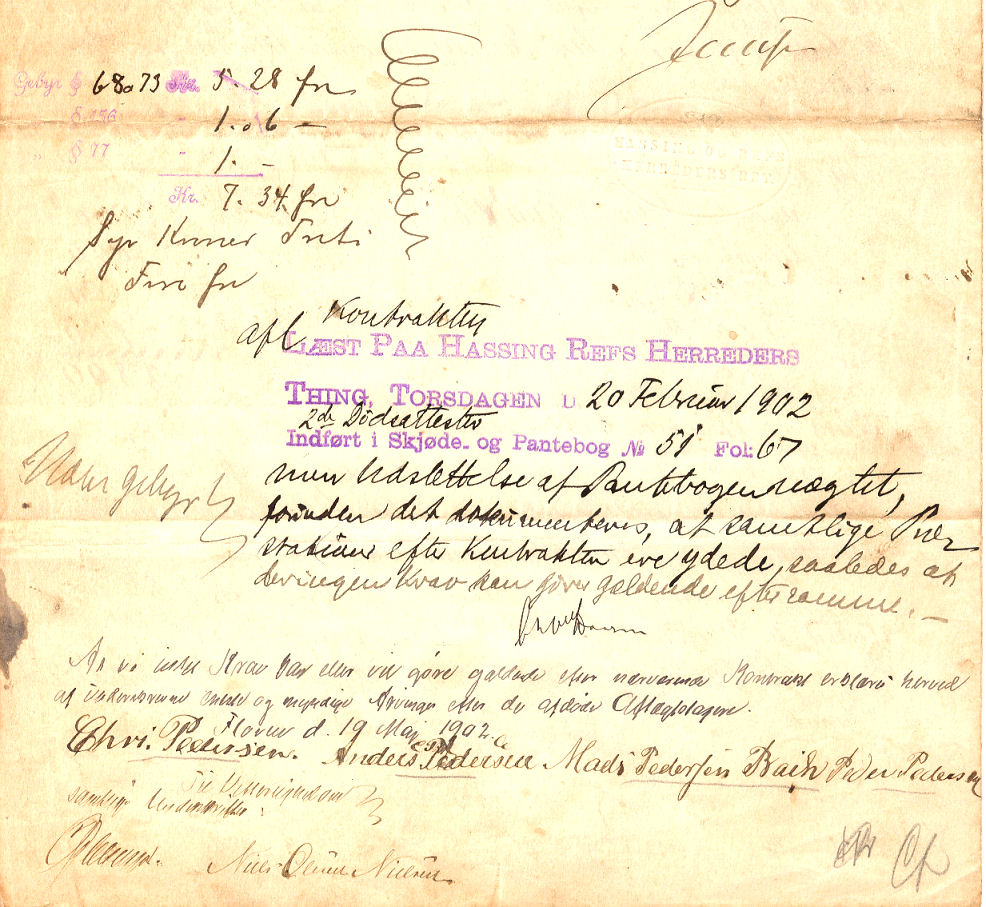 Gebyr § 68 o 73 Kr. 5. 28 Øre
§ 156 - 1. 06 -
" § 77 - 1. -
Kr. 7. 34 Øre
Syv Kroner Treti
Fire Øre
HASSING OG REFS
HERREDERS
Kontrakten
afl
LÆST PAA HASSING REFS HERREDERS
THING, TORSDAGEN D 20 Februar 1902
2de Dødsattester
Indført i Skjøde- og Pantebog № 51 Fol: 67
men Udslettelse af Pantebogen nægtet,
forinden det dokumenteres, at samtlige Præ-
stationer efter Kontrakten ere ydede, saaledes at
der ingen Krav kan gøres gældende efter samme. —
Uden gebyr
At vi intet Krav har eller vil gøre gældende efter nærværende Kontrakt erklæres herved
af undertegnede eneste og myndige Arvinger efter de afdøde Aftægtstagere.
Flovir d. 19 Maj 1902.
Chr. Pedersen. Anders Pedersen Mads Pedersen Bach Peder Pedersen
Til Vitterlighed om
samtlige Underskrifter:
Niels Nielsen